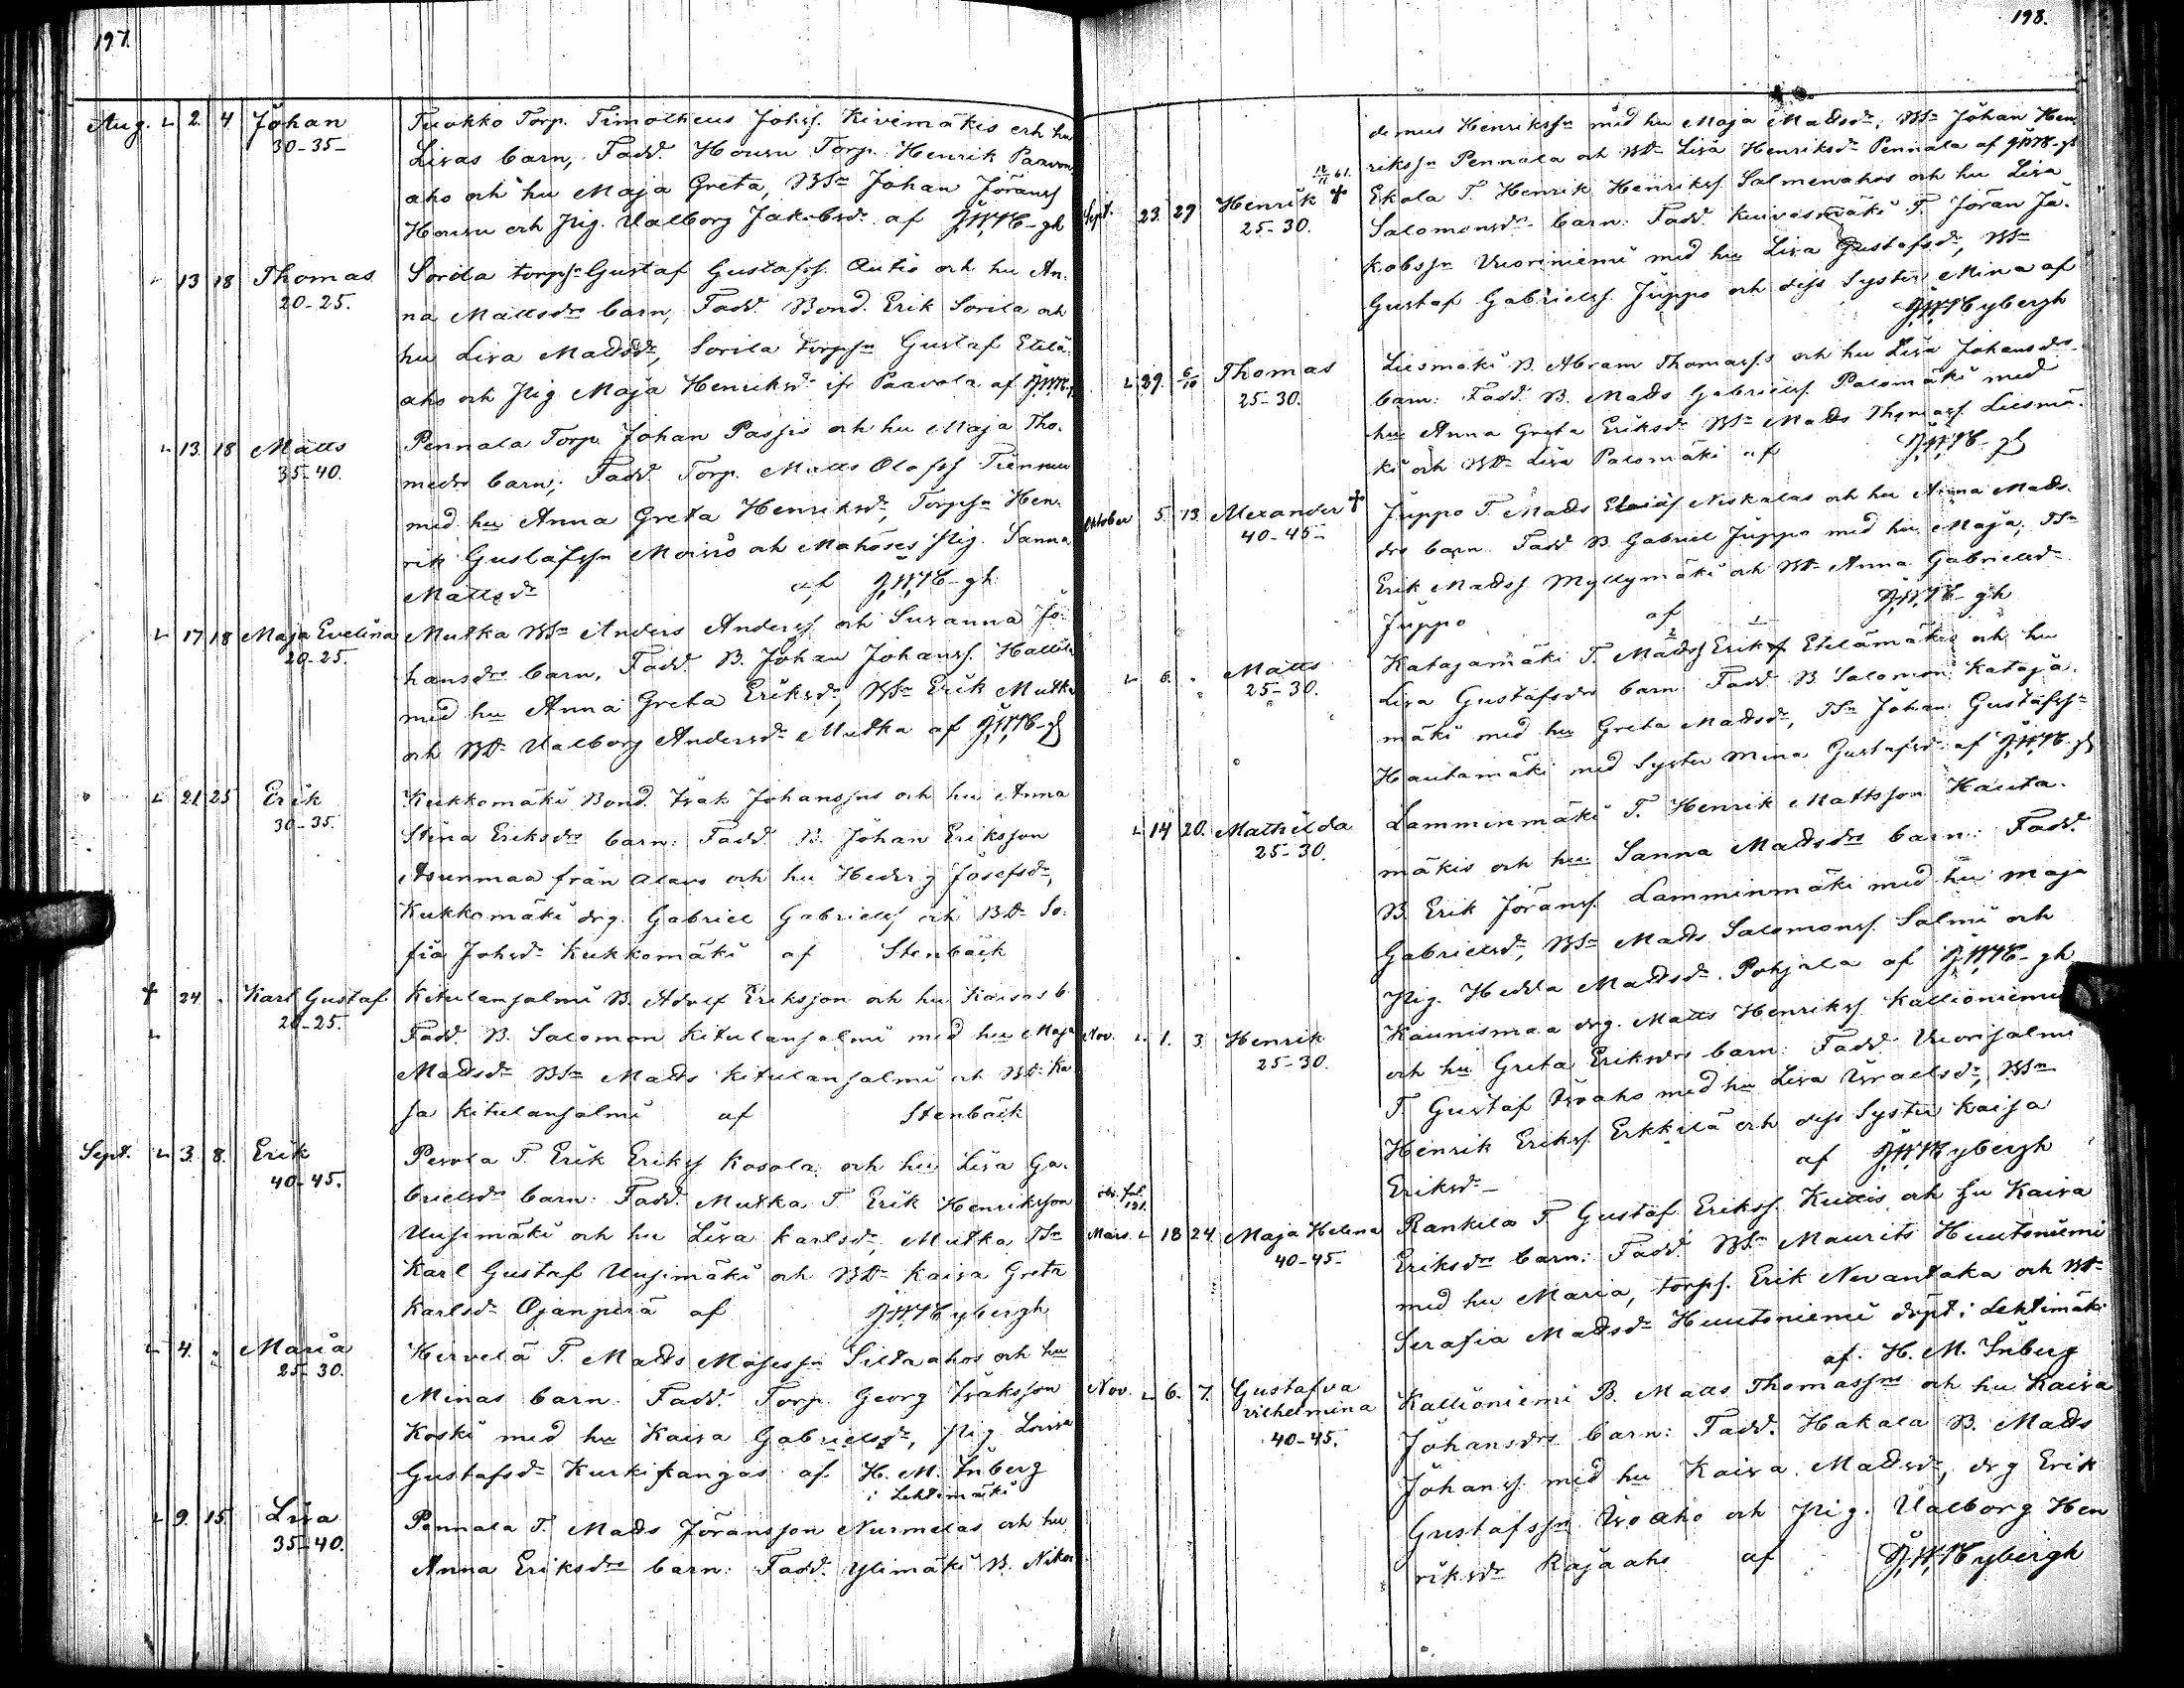 197.
Aug. L 2. 4 Johan Tuokko Torp. Timotheus Johss. Kivimäkis och hu
30-35- Lisas barn, Fadd. Housu Torp. Henrik Paavon
aho och hu Maja Greta, BSn Johan Jöranss
Housu och Pig. Valborg Jakobsdr af JWNb-gh
L 13 18 Thomas Sorila torpsn Gustaf Gustafss. Autio och hu An-
20-25. na Mattsdrs barn, Fadd. Bond. Erik Sorila och
hu Lisa Mattsdr, Sorila torpsn Gustaf Etelä-
aho och Pig Maja Henriksdr ifr Paavola af
L 13. 18 Matts Pennala Torp. Johan Passis och hu Maja Tho-
35-40. medrs barn; Fadd. Torp. Matts Olofss Tiensuu
med hu Anna Greta Henriksdr, Torpsn Hen-
rik Gustafssn Moisio och Mahoses Pig. Sanna
Mattsdr af JWNb-gh
L 17 18 Maja Evelina Mutka BSn Anders Anderss och Susanna Jo-
20-25. hansdrs barn, Fadd. B. Johan Johanss. Hallila
med hu Anna Greta Eriksdr, BSn Erik Mutka
och BDr Valborg Andersdr Mutka af JWNb-gh
L 21 25 Erik Kukkomäki Bond. Isak Johanssns och hu Anna
30-35. Stina Eriksdrs barn: Fadd. B. Johan Eriksson
Asunmaa från Alavo och hu Hedvig Josefsdr,
Kukkomäki drg. Gabriel Gabrielss och BDr So-
fia Johsdr Kukkomäki af Stenbäck
† 24 " Karl Gustaf Kitulansalmi B. Adolf Eriksson och hu Kaisas b.
L 20-25. Fadd. B. Salomon Kitulansalmi med hu Maja
Mattsdr BSn Matts Kitulansalmi och BDr Ka
sa Kitulansalmi af Stenbäck
Sept. L 3. 8. Erik Perola T. Erik Erikss Kosola och hu Lisa Ga-
40-45. brielsdrs barn: Fadd. Mutka T Erik Henriksson
Uusimäki och hu Lisa Karlsdr, Mutka TSn
Karl Gustaf Uusimäki och BDr Kaisa Greta
Karlsdr Ojanperä af JWNybergh
L 4. " Maria Hervelä T. Matts Mosessn Siltaahos och hu
25-30. Minas barn. Fadd. Torp. Georg Isaksson
Koski med hu Kaisa Gabrielsdr, Pig Lovisa
Gustafsdr Kurkikangas af H. M. Inberg
i Lehtimäki
L 9. 15. Lisa Pennala T. Matts Jöransson Nurmelas och hu
35-40. Anna Eriksdrs barn: Fadd. Ylimäki B. Niko
198.
demus Henrikssn med hu Maja Mattsdr, BSn Johan Hen-
12/11 61. rikssn Pennala och BDr Lisa Henriksdr Pennala af JWN-gh
Sept. 23. 29 Henrik † Ekola T. Henrik Henrikss. Salmenahos och hu Lisa
25-30. Salomonsdrs barn: Fadd. Kuivasmäki T. Jöran Ja-
kobssn Vuoriniemi med hu Lisa Gustafsdr, BSn
Gustaf Gabrielss. Juppo och dess Syster Mina af
JWNybergh
L 29. 6/10 Thomas Liesmäki B. Abram Thomass.s och hu Lisa Johansdrs
25-30. barn: Fadd. B. Matts Gabrielss Palomäki med
hu Anna Greta Eriksdr BSn Matts Thomass. Liesmä-
ki och BDr Lisa Palomäki af JWNb-gh
Oktober 5. 13. Alexander † Juppo T. Matts Eliass Niskalas och hu Anna Matts-
40-45- drs barn Fadd B. Gabriel Juppo med hu Maja, TSn
Erik Matss. Myllymäki och BDr Anna Gabrielsdr
Juppo af JWNb-gh
L 6. " Matts Katajamäki T. Matss Erik Etelämäkis och hu
25-30. Lisa Gustafsdrs barn Fadd. B. Salomon Kataja-
mäki med hu Greta Mattsdr, TSn Johan Gustafssn
Hautamäki med Syster Mina Gustafsdr af JWNb-gh
L 14 20. Mathilda Lamminmäki T. Henrik Mattsson Hauta-
25-30. mäkis och hu Sanna Mattsdrs barn: Fadd.
B. Erik Jöranss. Lamminmäki med hu Maja
Gabrielsdr, BSn Matts Salomonss. Salmi och
Pig. Hedda Mattsdr Pohjola af JWNb-gh
Nov. L 1. 3. Henrik Kaunismaa drg. Matts Henrikss Kallioniemi
25-30. och hu Greta Eriksdrs barn: Fadd Vuorisalmi
T. Gustaf Isoaho med hu Lisa Israelsdr, BSn
Henrik Erikss. Erkkilä och dess Syster Kaisa
Eriksdr- af JWNybergh
obs. fol. 191.
Mars. L 18 24 Maja Helena Rankila T Gustaf Erikss. Kullis och hu Kaisa
40-45- Eriksdrs barn: Fadd. BSn Maurits Huutoniemi
med hu Maria, torps. Erik Nevantaka och BDr
Serafia Mattsdr Huutoniemi döpt i Lehtimäki
af. H. M. Inberg
Nov. L 6. 7. Gustafva Kallioniemi B. Matts Thomassns och hu Kaisa
Vilhelmina Johansdrs barn: Fadd. Hakala B. Matts
40-45. Johanss. med hu Kaisa Mattsdr, drg Erik
Gustafssn Isoaho och Pig. Valborg Hen
riksdr Rajaaho af JWNybergh